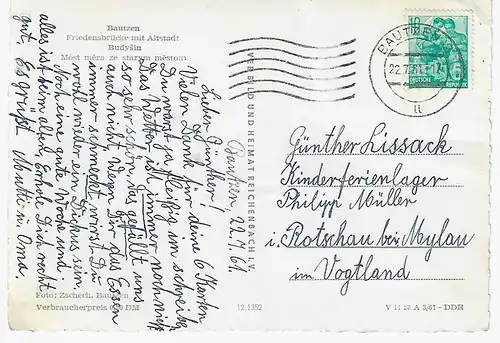 Bautzen
Friedensbrücke mit Altstadt
Budyšin
Móst měra ze starym městom
Bautzen 22.7.61.
Lieber Günther!
Vielen Dank für deine 6 Karten
Du warst ja fleißig im schreiben
das Wetter ist immer noch nicht
so sehr schön, das gefällt uns
auch nicht. Wenn Dir das Essen
immer schmeckt wirst Du
wohl wieder ein Dickus sein.
Noch eine gute Woche und
alles ist beim alten. Erhole Dich recht
gut. Es grüßt Mutti u. Oma.
Foto: Zschech, Bautzen
Verbraucherpreis DM
VERBILD UND HEIMAT REICHENBACH I. V.
12 1352
V 11 28 A 3/61 - DDR
BAUTZEN
22.7.61
u
10
5
DEUTSCHE
REPUBLIK
Günther Lissack
Kinderferienlager
Philipp Müller
i. Rotschau bei Mylau
im Vogtland